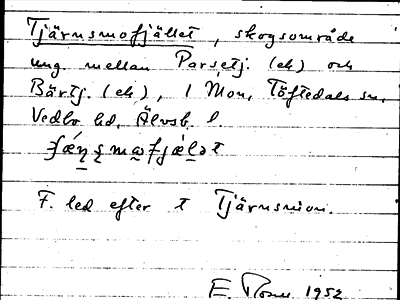 Tjärnsmofjället, skogsområde
ung. mellan Porsetj. (ek) och
Bärtj. (ek), i Mon, Töftedals sn,
Vedbo hd, Älvsb. l.
F. led efter t Tjärnsmon.
E. 1952